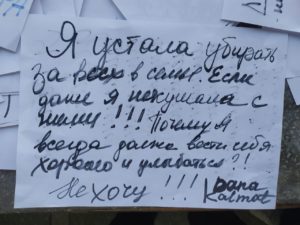 Я устала убирать
за всех в семье. Если
даже я некушала с
ними!!! Почему я
всегда должна вести себя
хорошо и улыбаться?!
Не хочу!!!